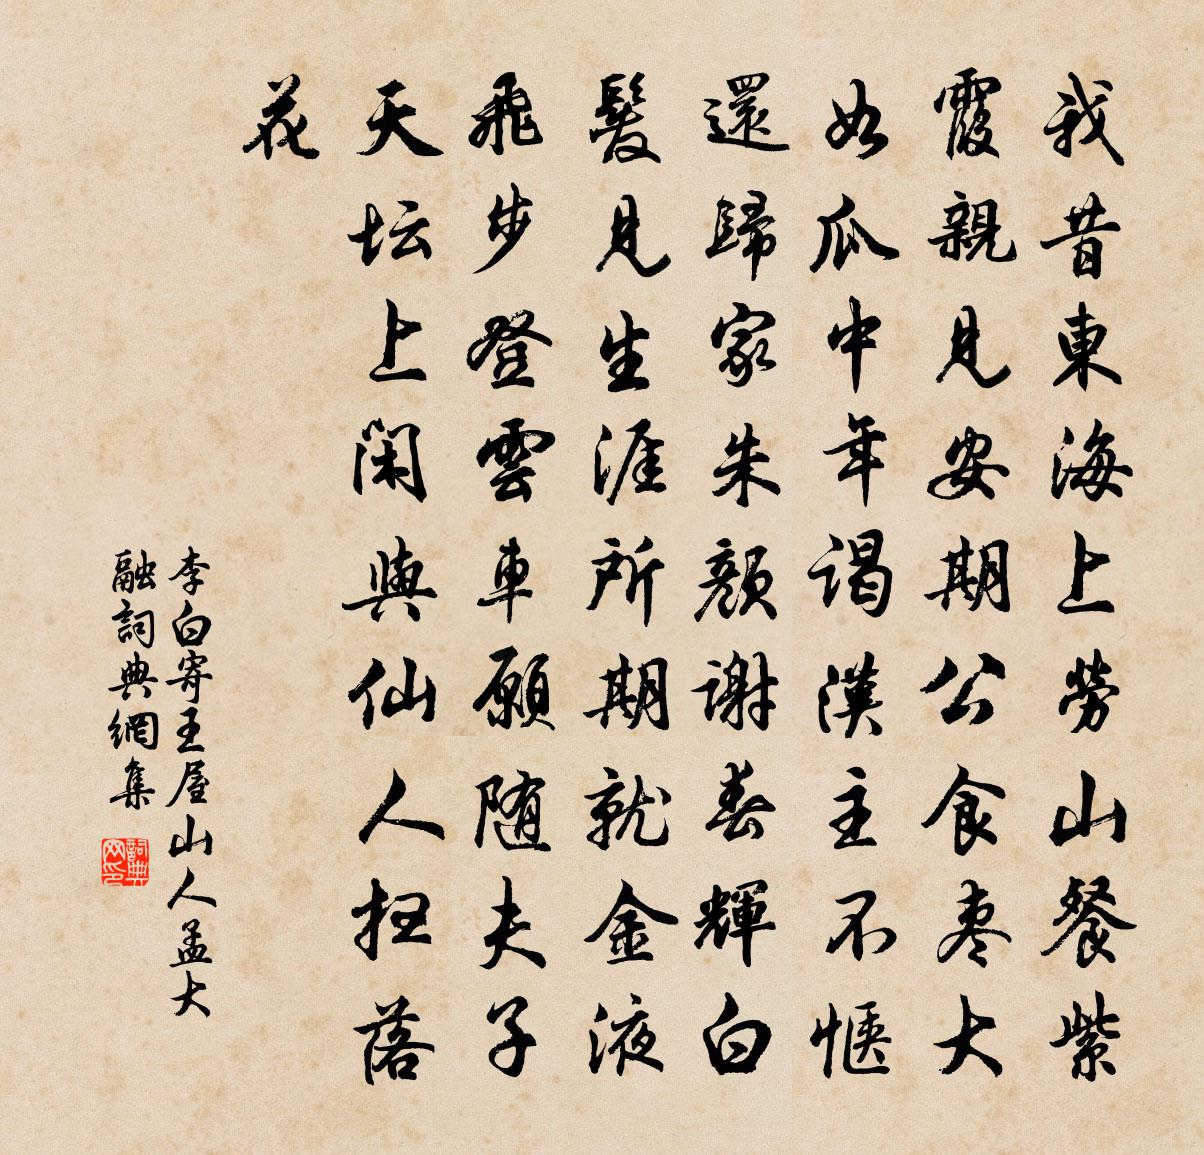 我昔東海上勞山餐紫
霞親見安期公食枣大
如瓜中年谒漢主不惬
還歸家朱顏謝春輝白
髮見生涯所期就金液
飛步登雲車願随夫子
天坛上闲與仙人扫落
花
李白寄王屋山人孟大
融詞典網集
詞典
网印